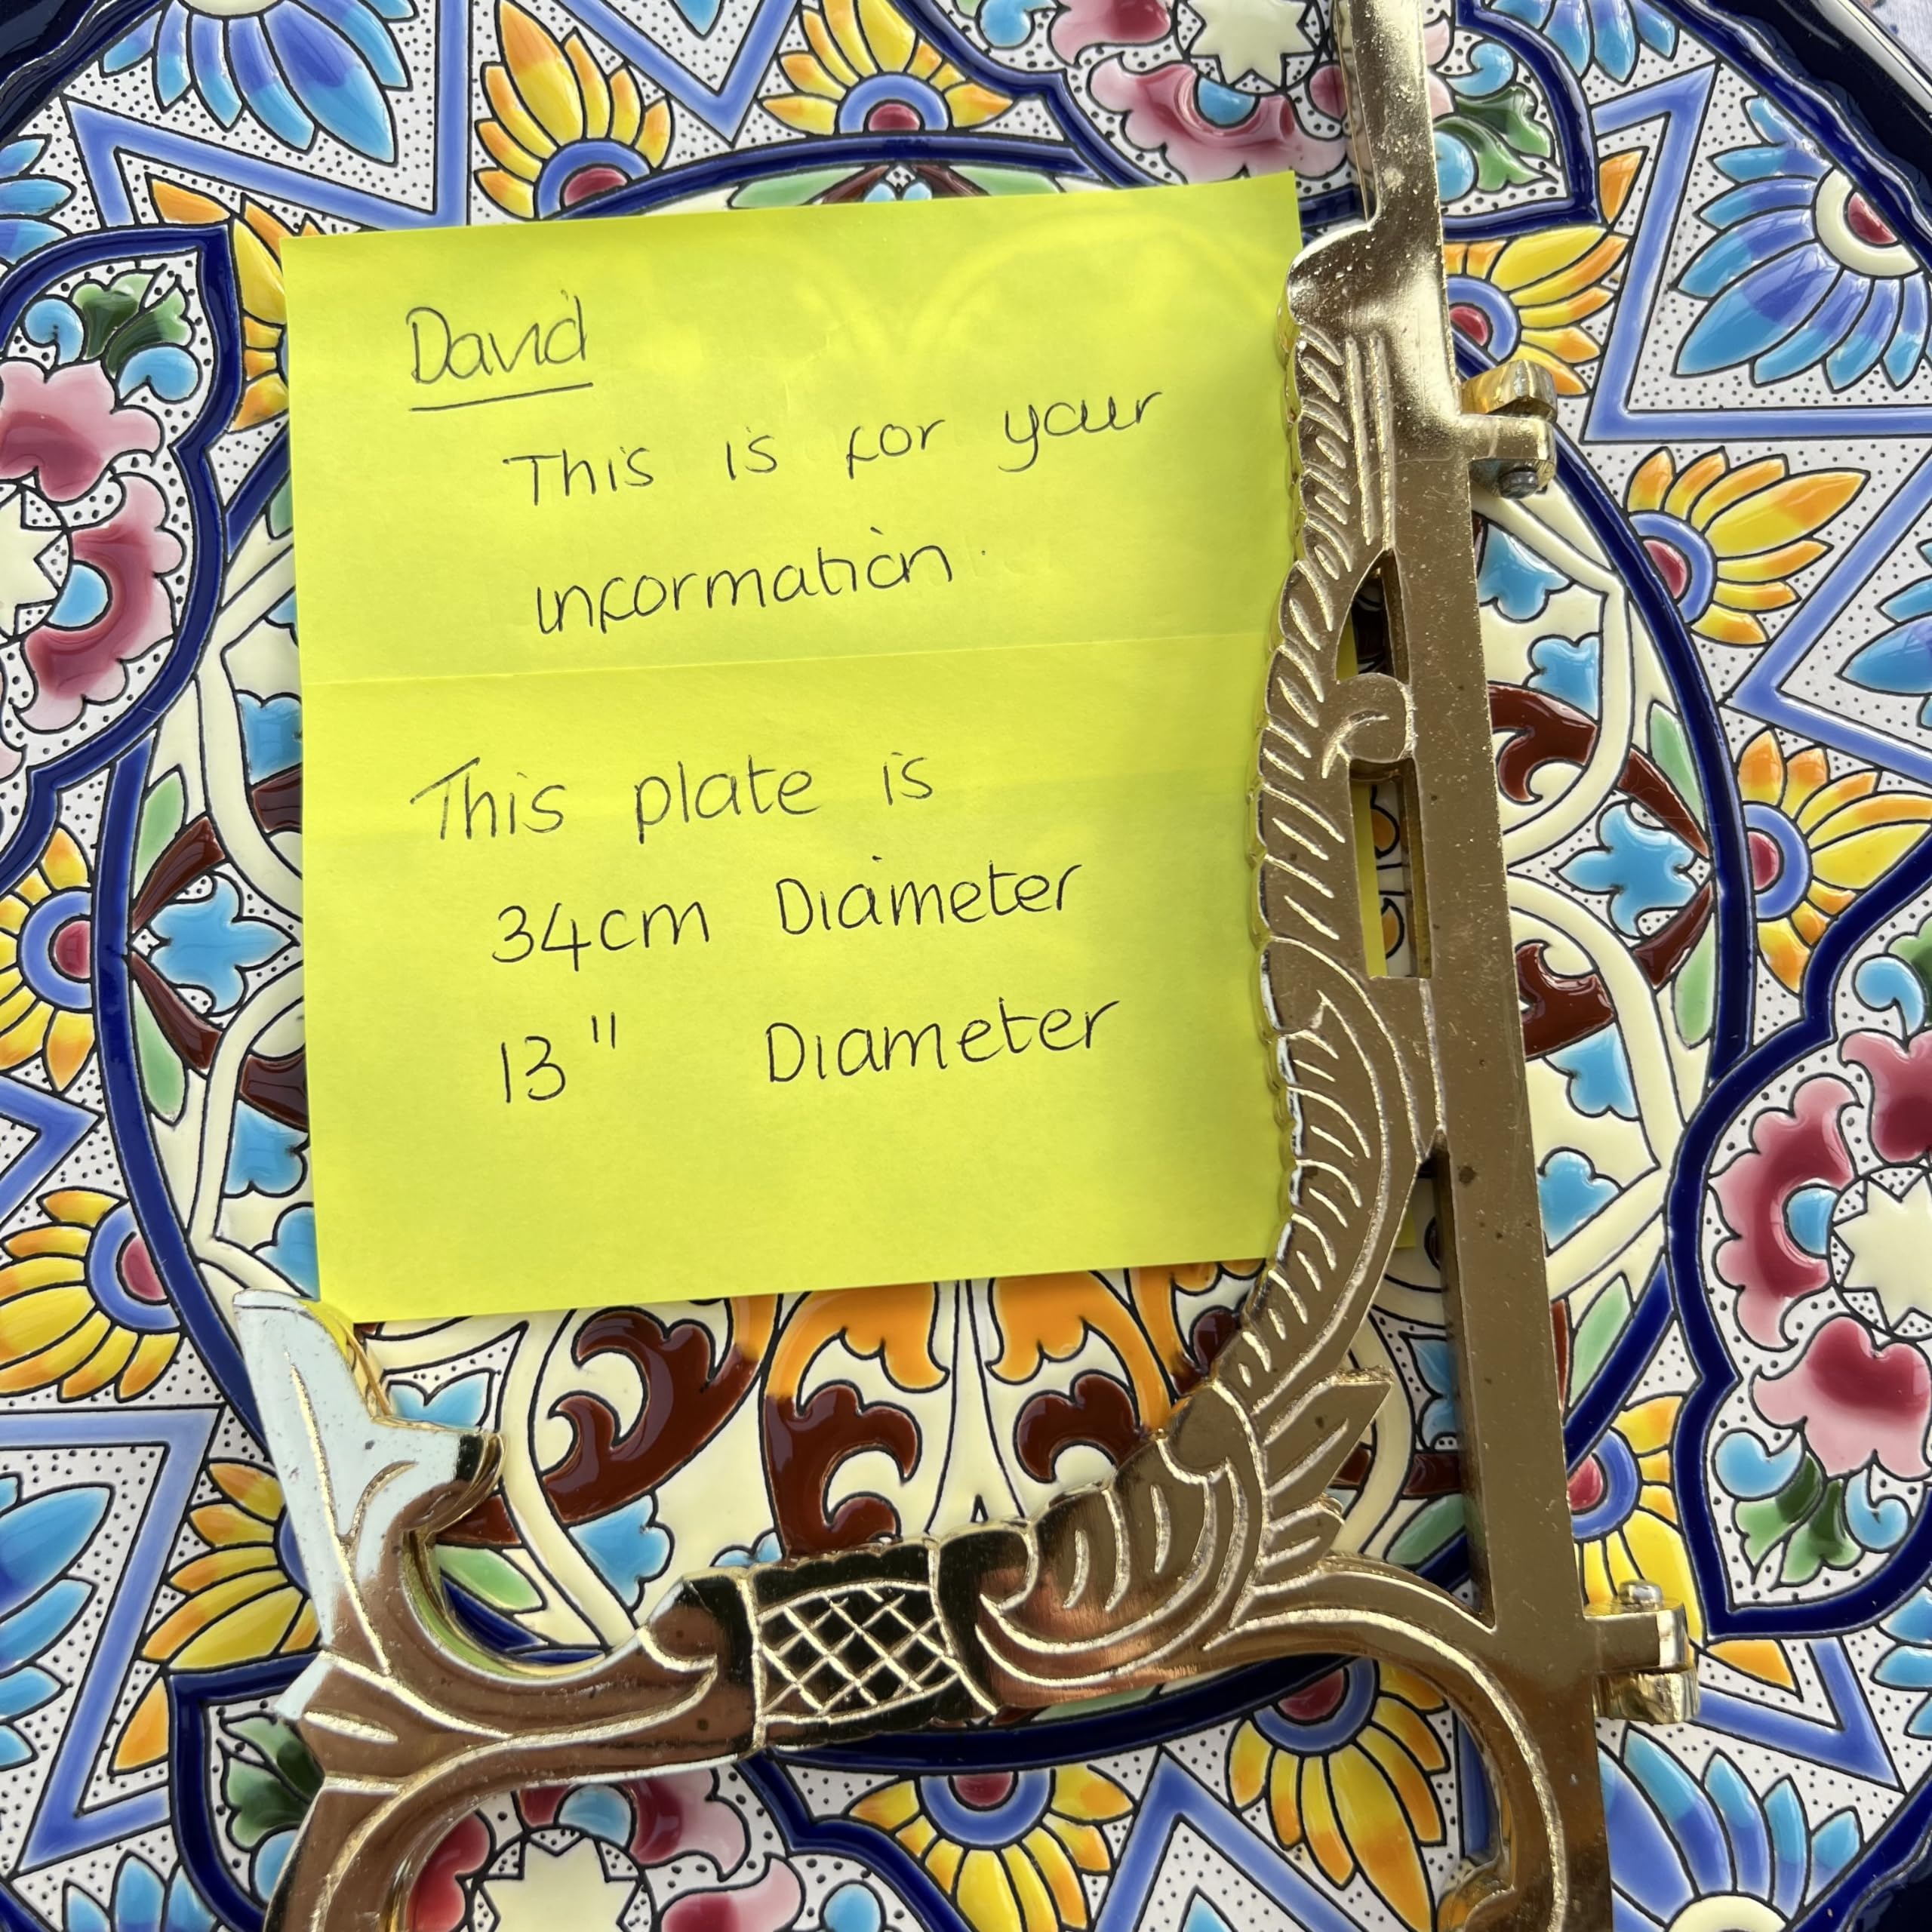 David
This is for your
information.
This plate is
34cm Diameter
13" Diameter